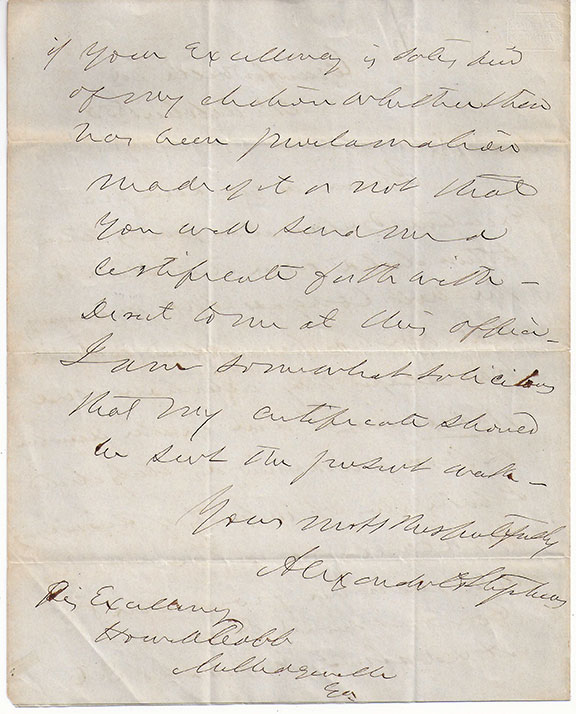 if Your Excellency is satisfied
of my election whether there
has been proclamation
made of it or not that
you will send me a
certificate forthwith –
Direct to me at this office –
I am somewhat solicitous
that my certificate should
be sent the present week –
Yours most Respectfully
Alexander H Stephens
His Excellency
Howell Cobb
Milledgeville
Ga